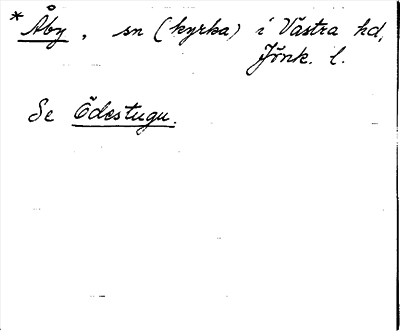 * Åby, sn (kyrka) i Västra hd,
Jönk. l.
Se Ödestugu.